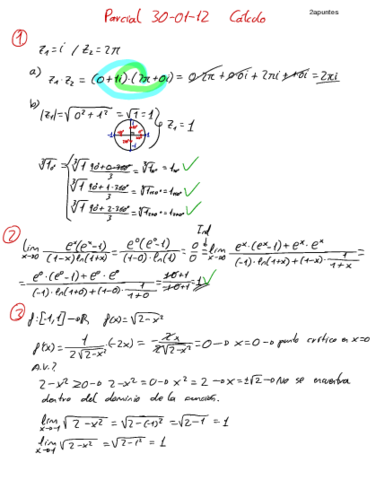 Parcial 30-01-12 Cálculo
2apuntes
1
z₁=i / z₂=2π
a) z₁·z₂=(0+1i)·(2π+0i)=0·2π+0·0i+2πi+i·0i=2πi
b)
|z₁|=√(0²+1²)=√1=1 z₁=1
∛1 90+0·360/3 = ∛1 = 1 ✓
∛1 90+1·360/3 = ✓
∛1 90+2·360/3 = ✓
2
lim x→0 eˣ(eˣ-1)/((1-x)ln(1+x)) = e⁰(e⁰-1)/((1-0)·ln(1)) = 0/0 = lim x→0 (eˣ·(eˣ-1)+eˣ·eˣ)/((-1)·ln(1+x)+(1-x)·1/(1+x)) =
= (e⁰·(e⁰-1)+e⁰·e⁰)/((-1)·ln(1+0)+(1-0)·1/(1+0)) = (0+1)/(0+1) = 1 ✓
3
f:[-1,1]→R f(x)=√(2-x²)
f'(x)= 1/(2√(2-x²)) ·(-2x) = -2x/(2√(2-x²)) =0→x=0→punto crítico en x=0
A.V.?
2-x²≥0→2-x²=0→x²=2→x=±√2→No se encuentra
dentro del dominio de la función.
lim x→-1 √(2-x²) = √(2-(-1)²) = √(2-1) = 1
lim x→1 √(2-x²) = √(2-1²) = 1